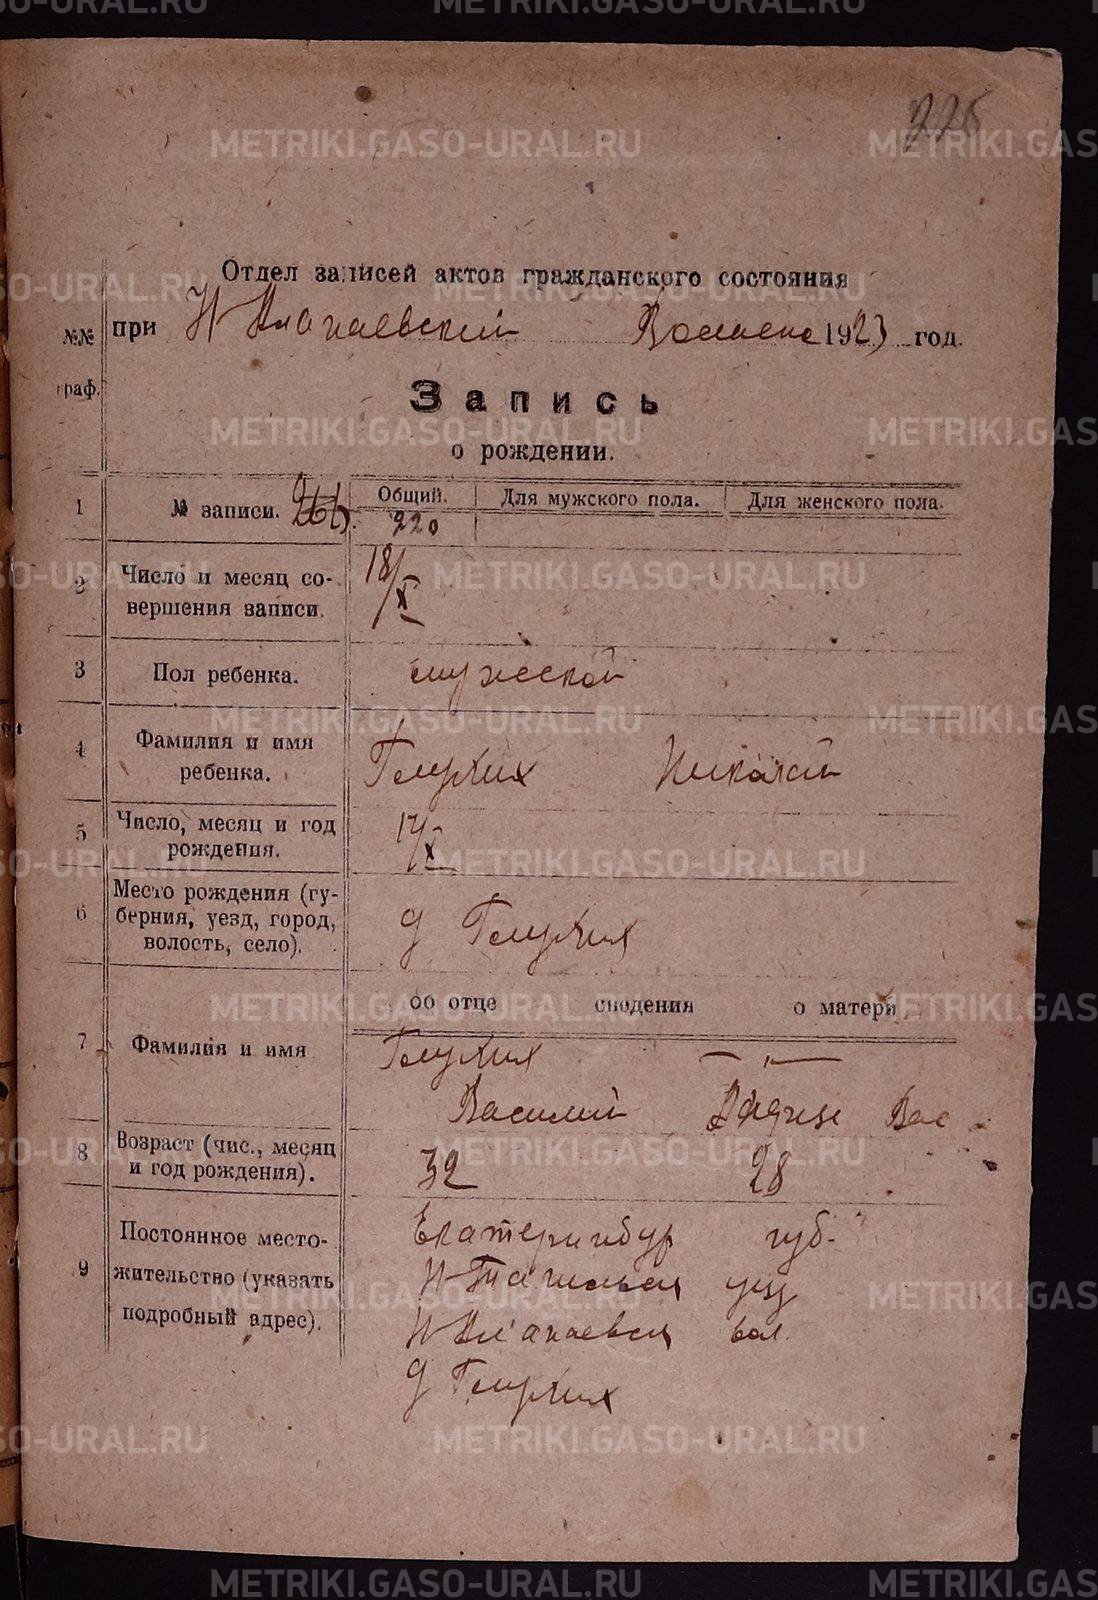 226
Отдел записей актов гражданского состояния
при Н Алапаевский 1923 год.
№№ граф.
Запись
о рождении.
1 № записи. Общий. Для мужского пола. Для женского пола.
220
2 Число и месяц совершения записи. 18/X
3 Пол ребенка. мужской
4 Фамилия и имя ребенка. Глухих Николай
5 Число, месяц и год рождения. 17/X
6 Место рождения (губерния, уезд, город, волость, село). д Глухих
об отце сведения о матери
7 Фамилия и имя Глухих — „ —
Василий Вас
8 Возраст (чис., месяц и год рождения). 32 28
9 Постоянное местожительство (указать подробный адрес). Екатеринбур губ.
Н-Тагильск уез
Н Алапаевск вол.
д Глухих
METRIKI.GASO-URAL.RU